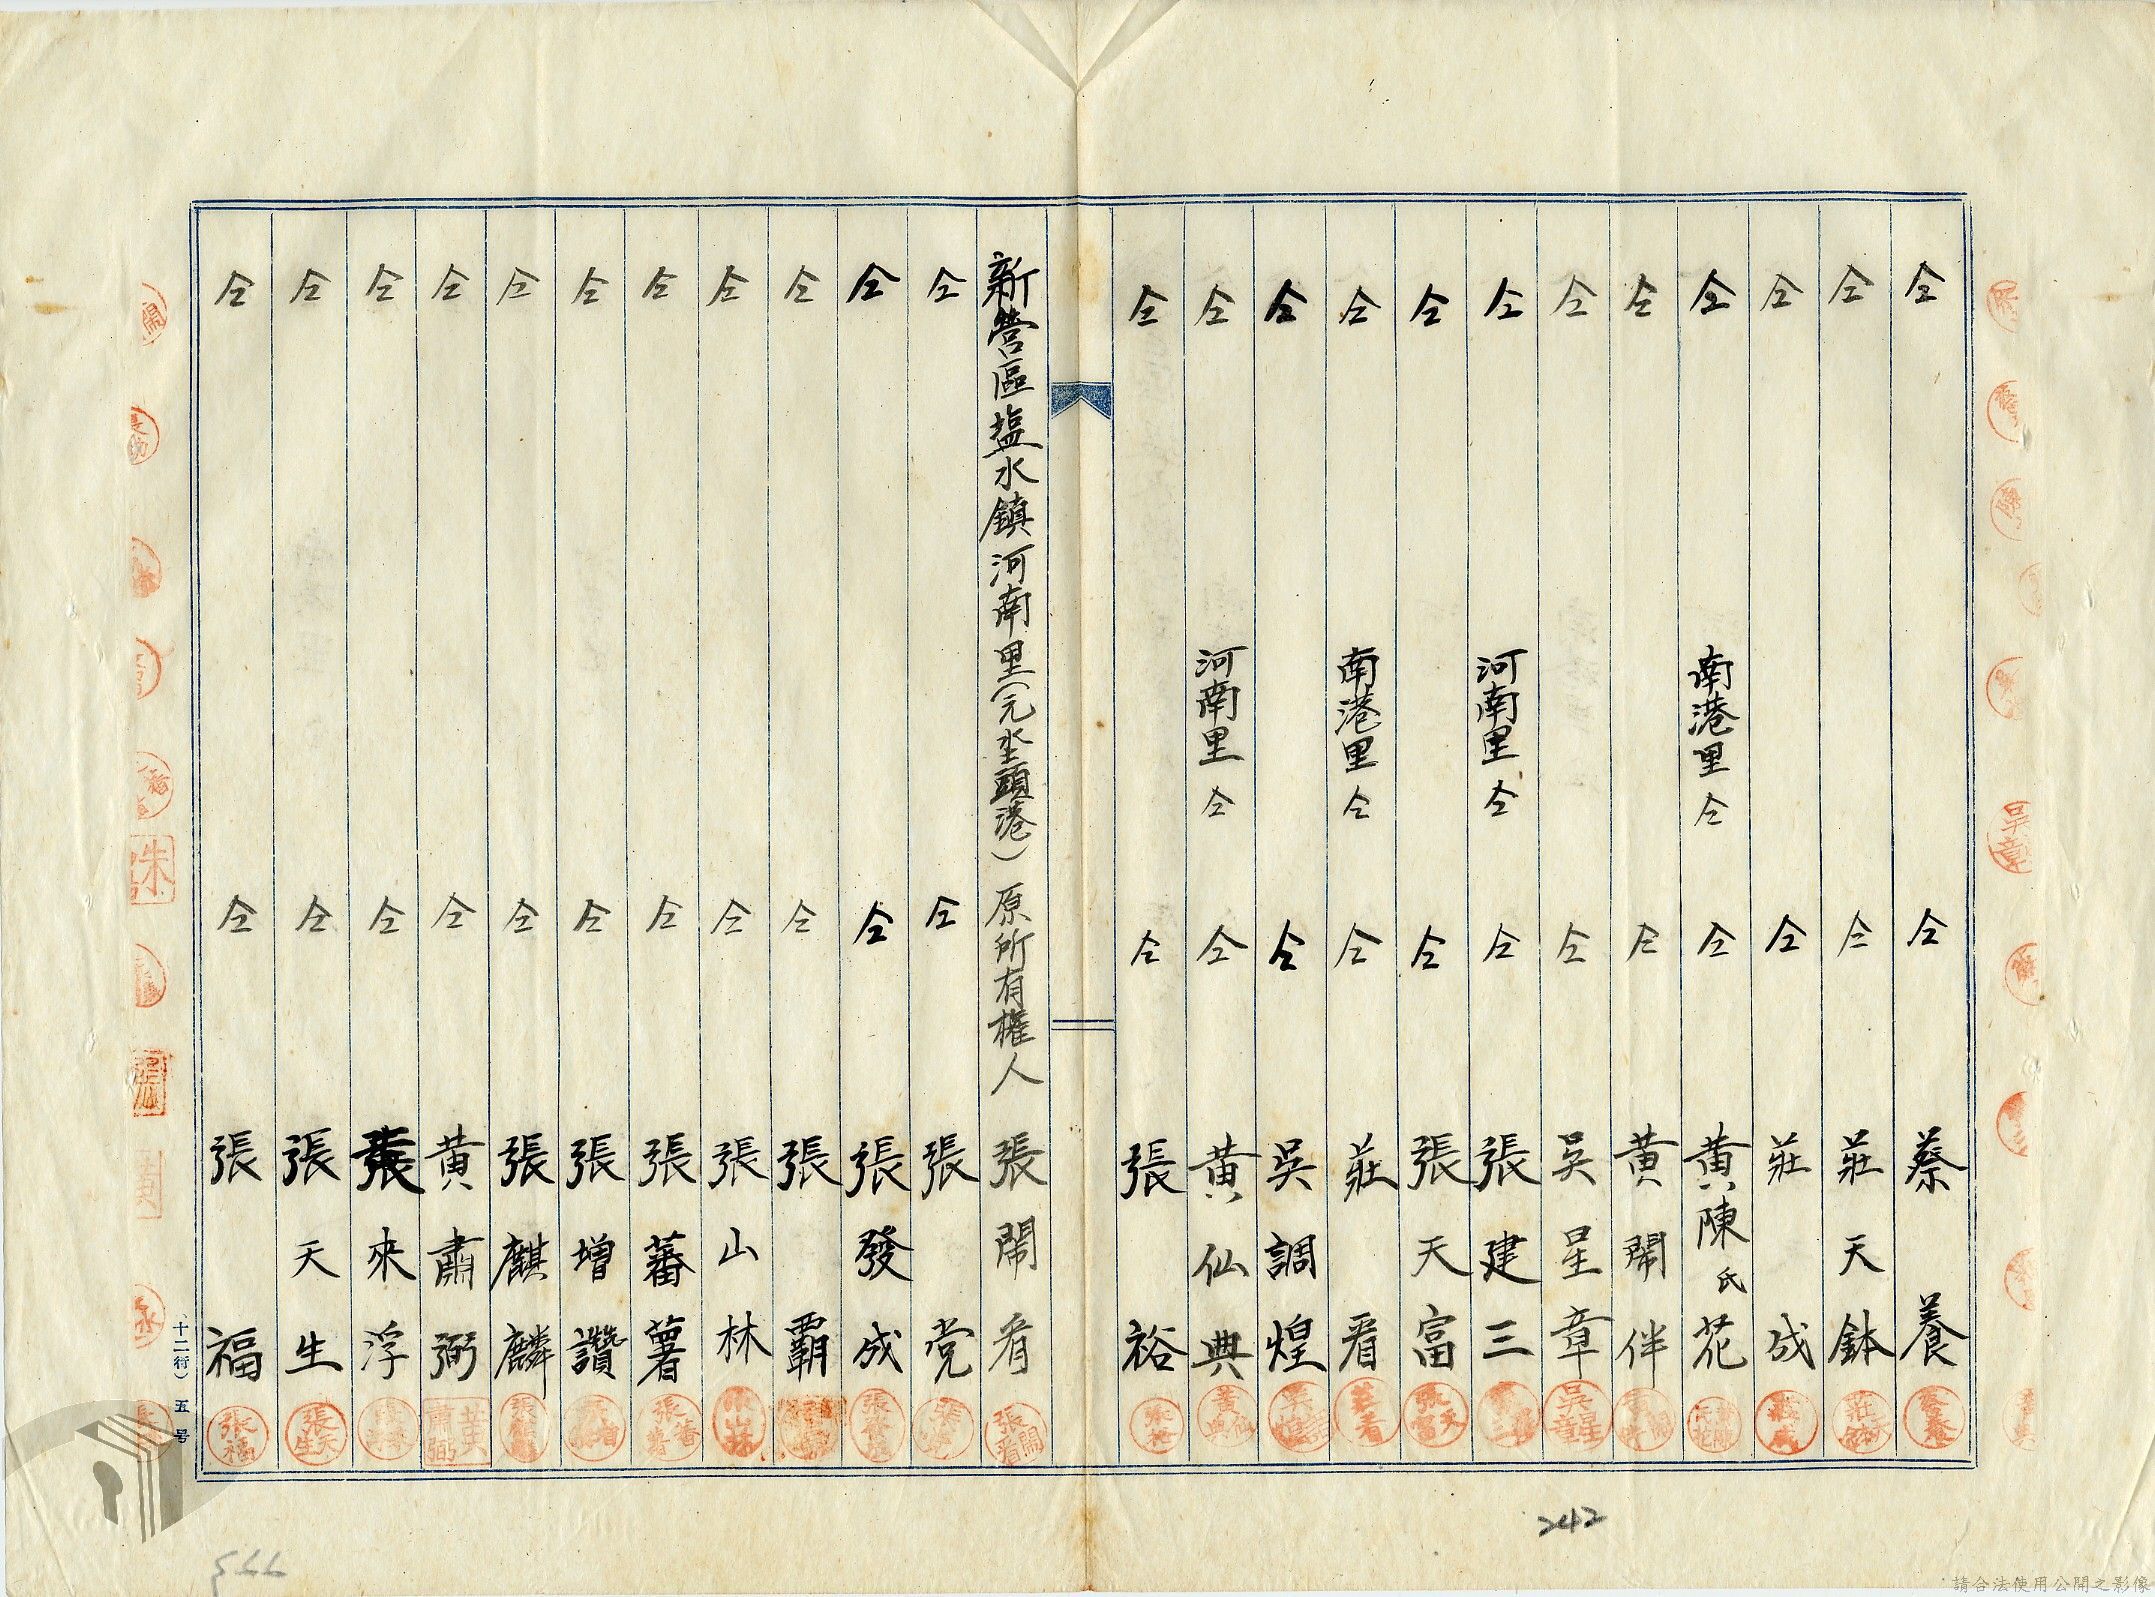 仝 仝 蔡養
仝 仝 莊天鉢
仝 仝 莊成
仝 南港里仝 仝 黄陳氏花
仝 仝 黄鬧伴
仝 仝 吳星章
仝 河南里仝 仝 張建三
仝 仝 張天富
仝 南港里仝 仝 莊看
仝 仝 吳調煌
仝 河南里仝 仝 黄仙典
仝 仝 張裕
新营區塩水鎮河南里(元坔頭港)原所有權人 張鬧看
仝 仝 張党
仝 仝 張發成
仝 仝 張覇
仝 仝 張山林
仝 仝 張蕃薯
仝 仝 張增讚
仝 仝 張麒麟
仝 仝 黄肅弼
仝 仝 張來浮
仝 仝 張天生
仝 仝 張福
十二行)五号
242
請合法使用公開之影像